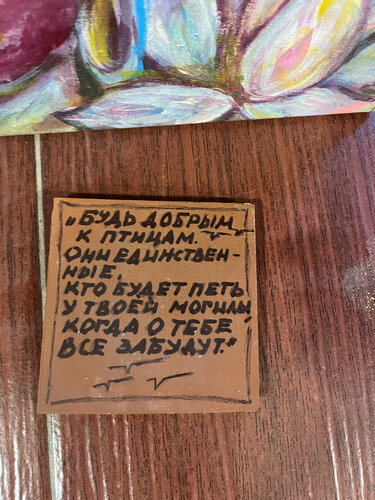 „БУДЬ ДОБРЫМ
К ПТИЦАМ.
ОНИ ЕДИНСТВЕН-
НЫЕ,
КТО БУДЕТ ПЕТЬ
У ТВОЕЙ МОГИЛЫ,
КОГДА О ТЕБЕ
ВСЕ ЗАБУДУТ."